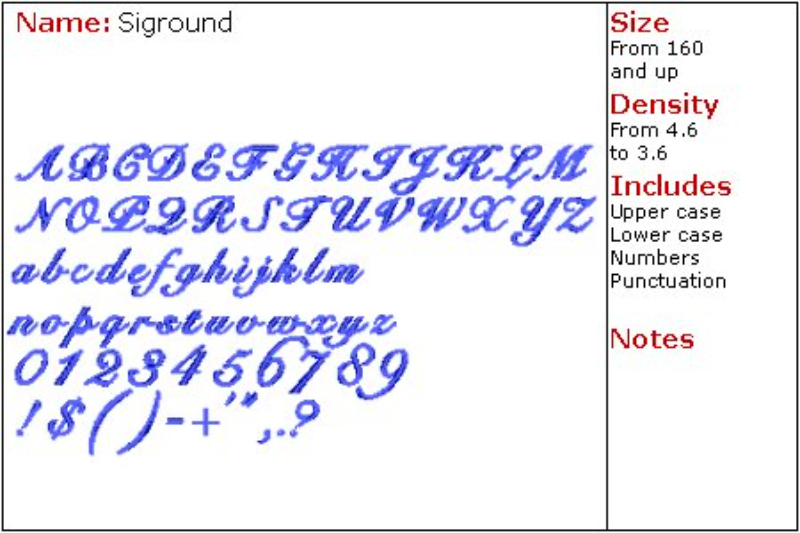 Name: Siground
ABCDEFGHIJKLM
NOPQRSTUVWXYZ
abcdefghijklm
nopqrstuvwxyz
0123456789
!$()-+'",.?
Size
From 160
and up
Density
From 4.6
to 3.6
Includes
Upper case
Lower case
Numbers
Punctuation
Notes